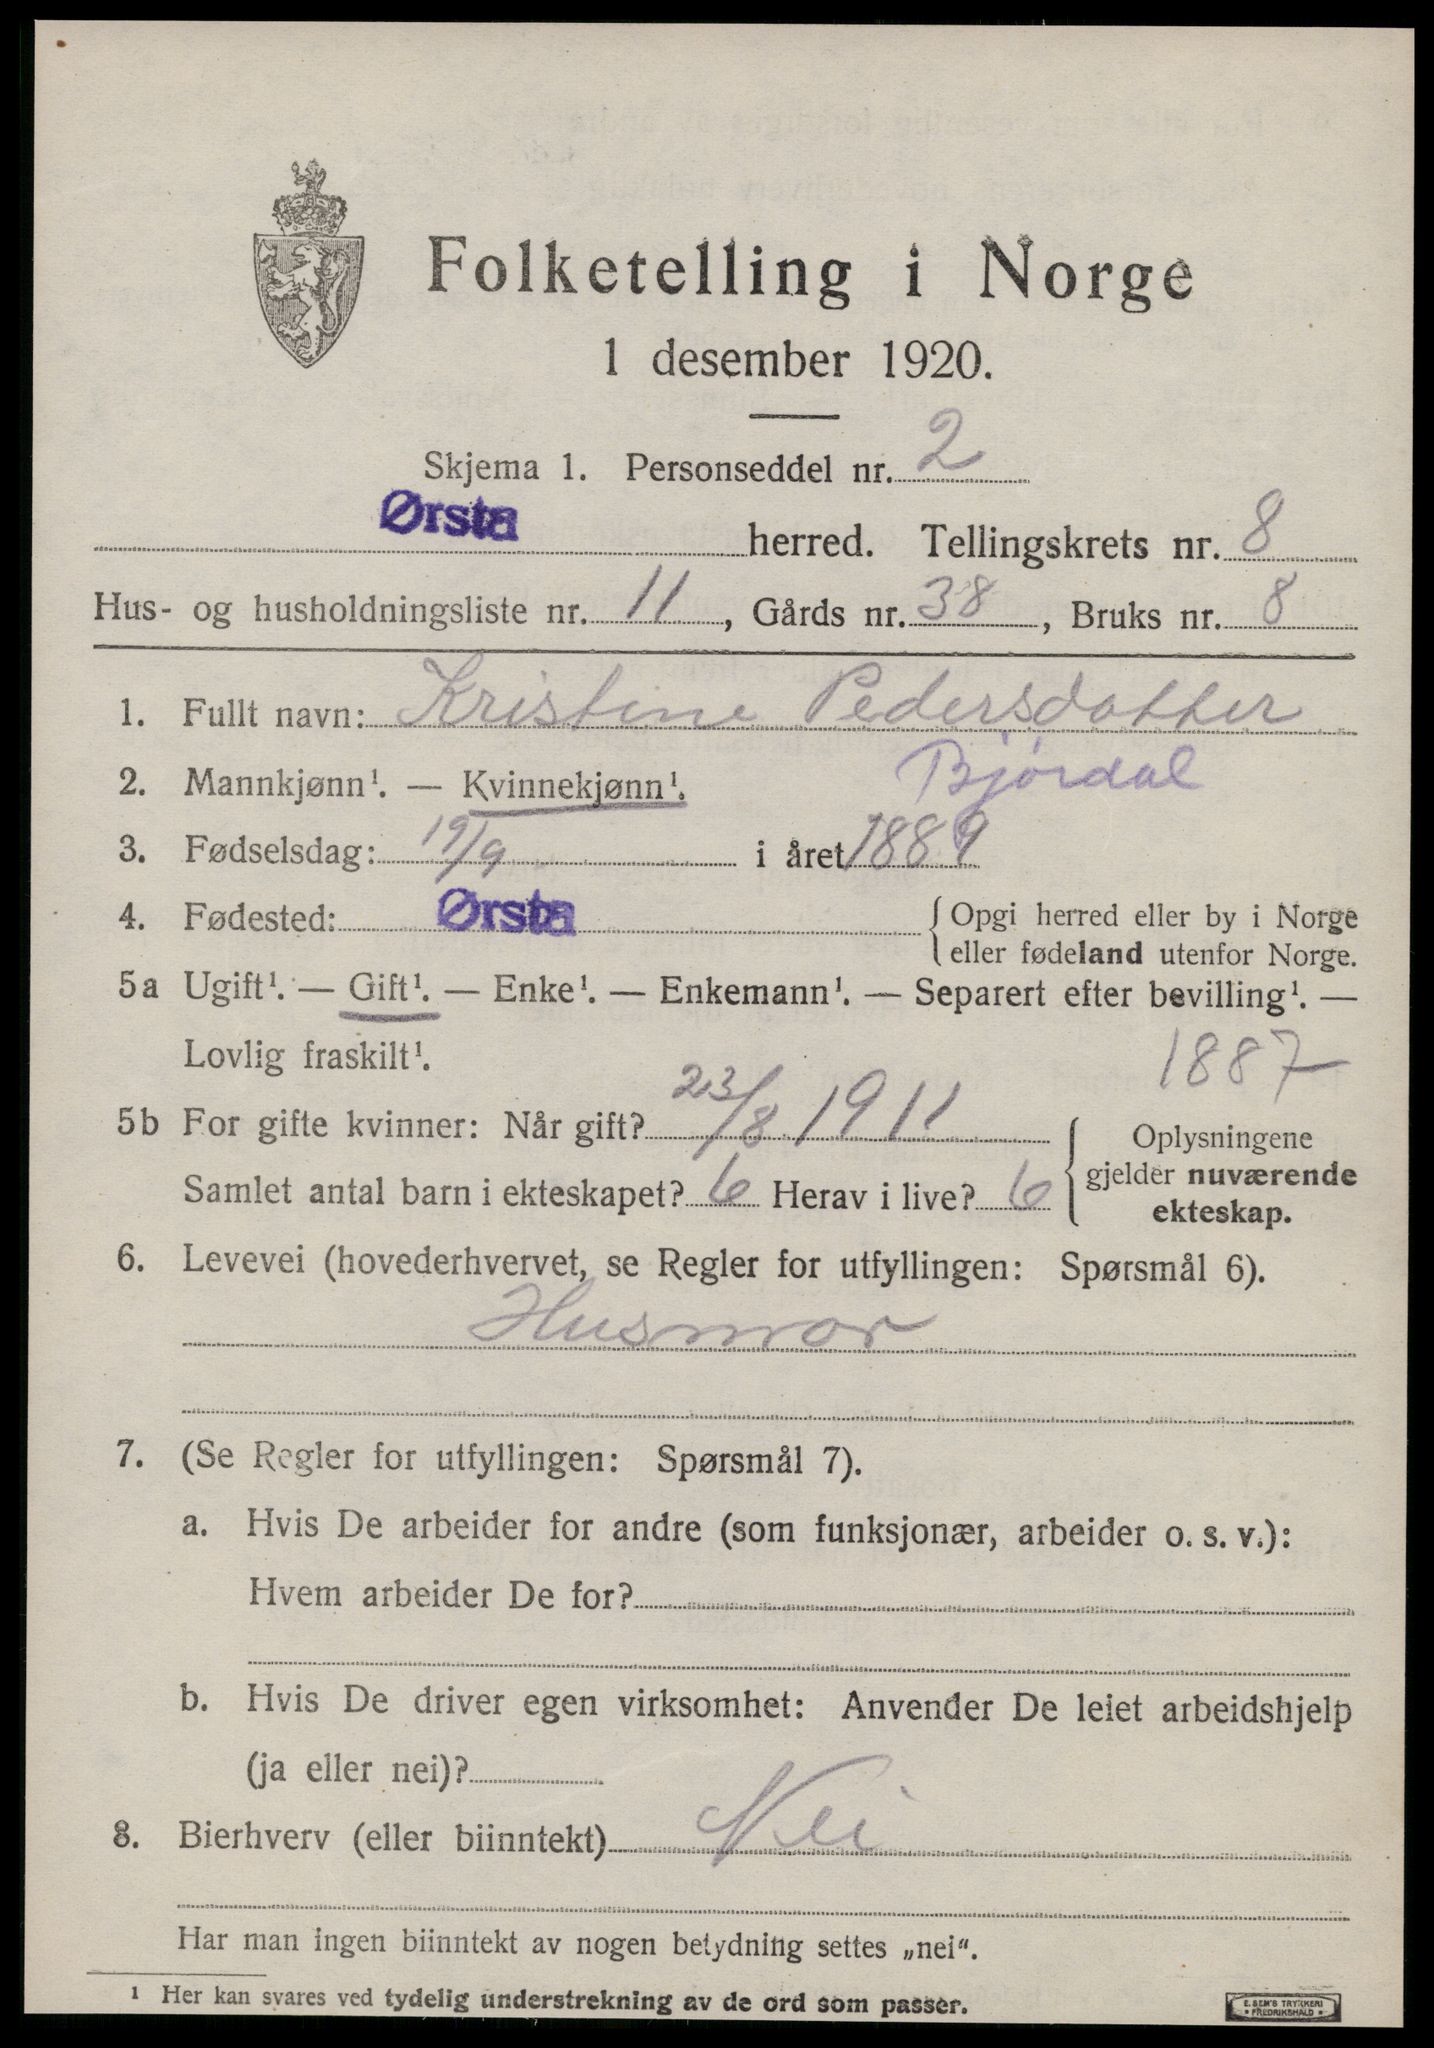 Folketelling i Norge
1 desember 1920.
Skjema 1. Personseddel nr. 2
Ørsta herred. Tellingskrets nr. 8
Hus- og husholdningsliste nr. 11, Gårds nr. 38, Bruks nr. 8
1. Fullt navn: Kristine Pedersdatter
Bjørdal
2. Mannkjønn¹. — Kvinnekjønn¹.
3. Fødselsdag: 19/9 i året 1889
4. Fødested: Ørsta {Opgi herred eller by i Norge
eller fødeland utenfor Norge.
5a Ugift¹. — Gift¹. — Enke¹. — Enkemann¹. — Separert efter bevilling¹. —
Lovlig fraskilt¹. 1887
5b For gifte kvinner: Når gift? 23/8 1911
Samlet antal barn i ekteskapet? 6 Herav i live? 6
{Oplysningene
gjelder nuværende
ekteskap.
6. Levevei (hovederhvervet, se Regler for utfyllingen: Spørsmål 6).
Husmor
7. (Se Regler for utfyllingen: Spørsmål 7).
a. Hvis De arbeider for andre (som funksjonær, arbeider o. s. v.):
Hvem arbeider De for?
b. Hvis De driver egen virksomhet: Anvender De leiet arbeidshjelp
(ja eller nei)?
8. Bierhverv (eller biinntekt) Nei
Har man ingen biinntekt av nogen betydning settes „nei".
¹ Her kan svares ved tydelig understrekning av de ord som passer.
E. SEM'S TRYKKERI
• FREDRIKSHALD •